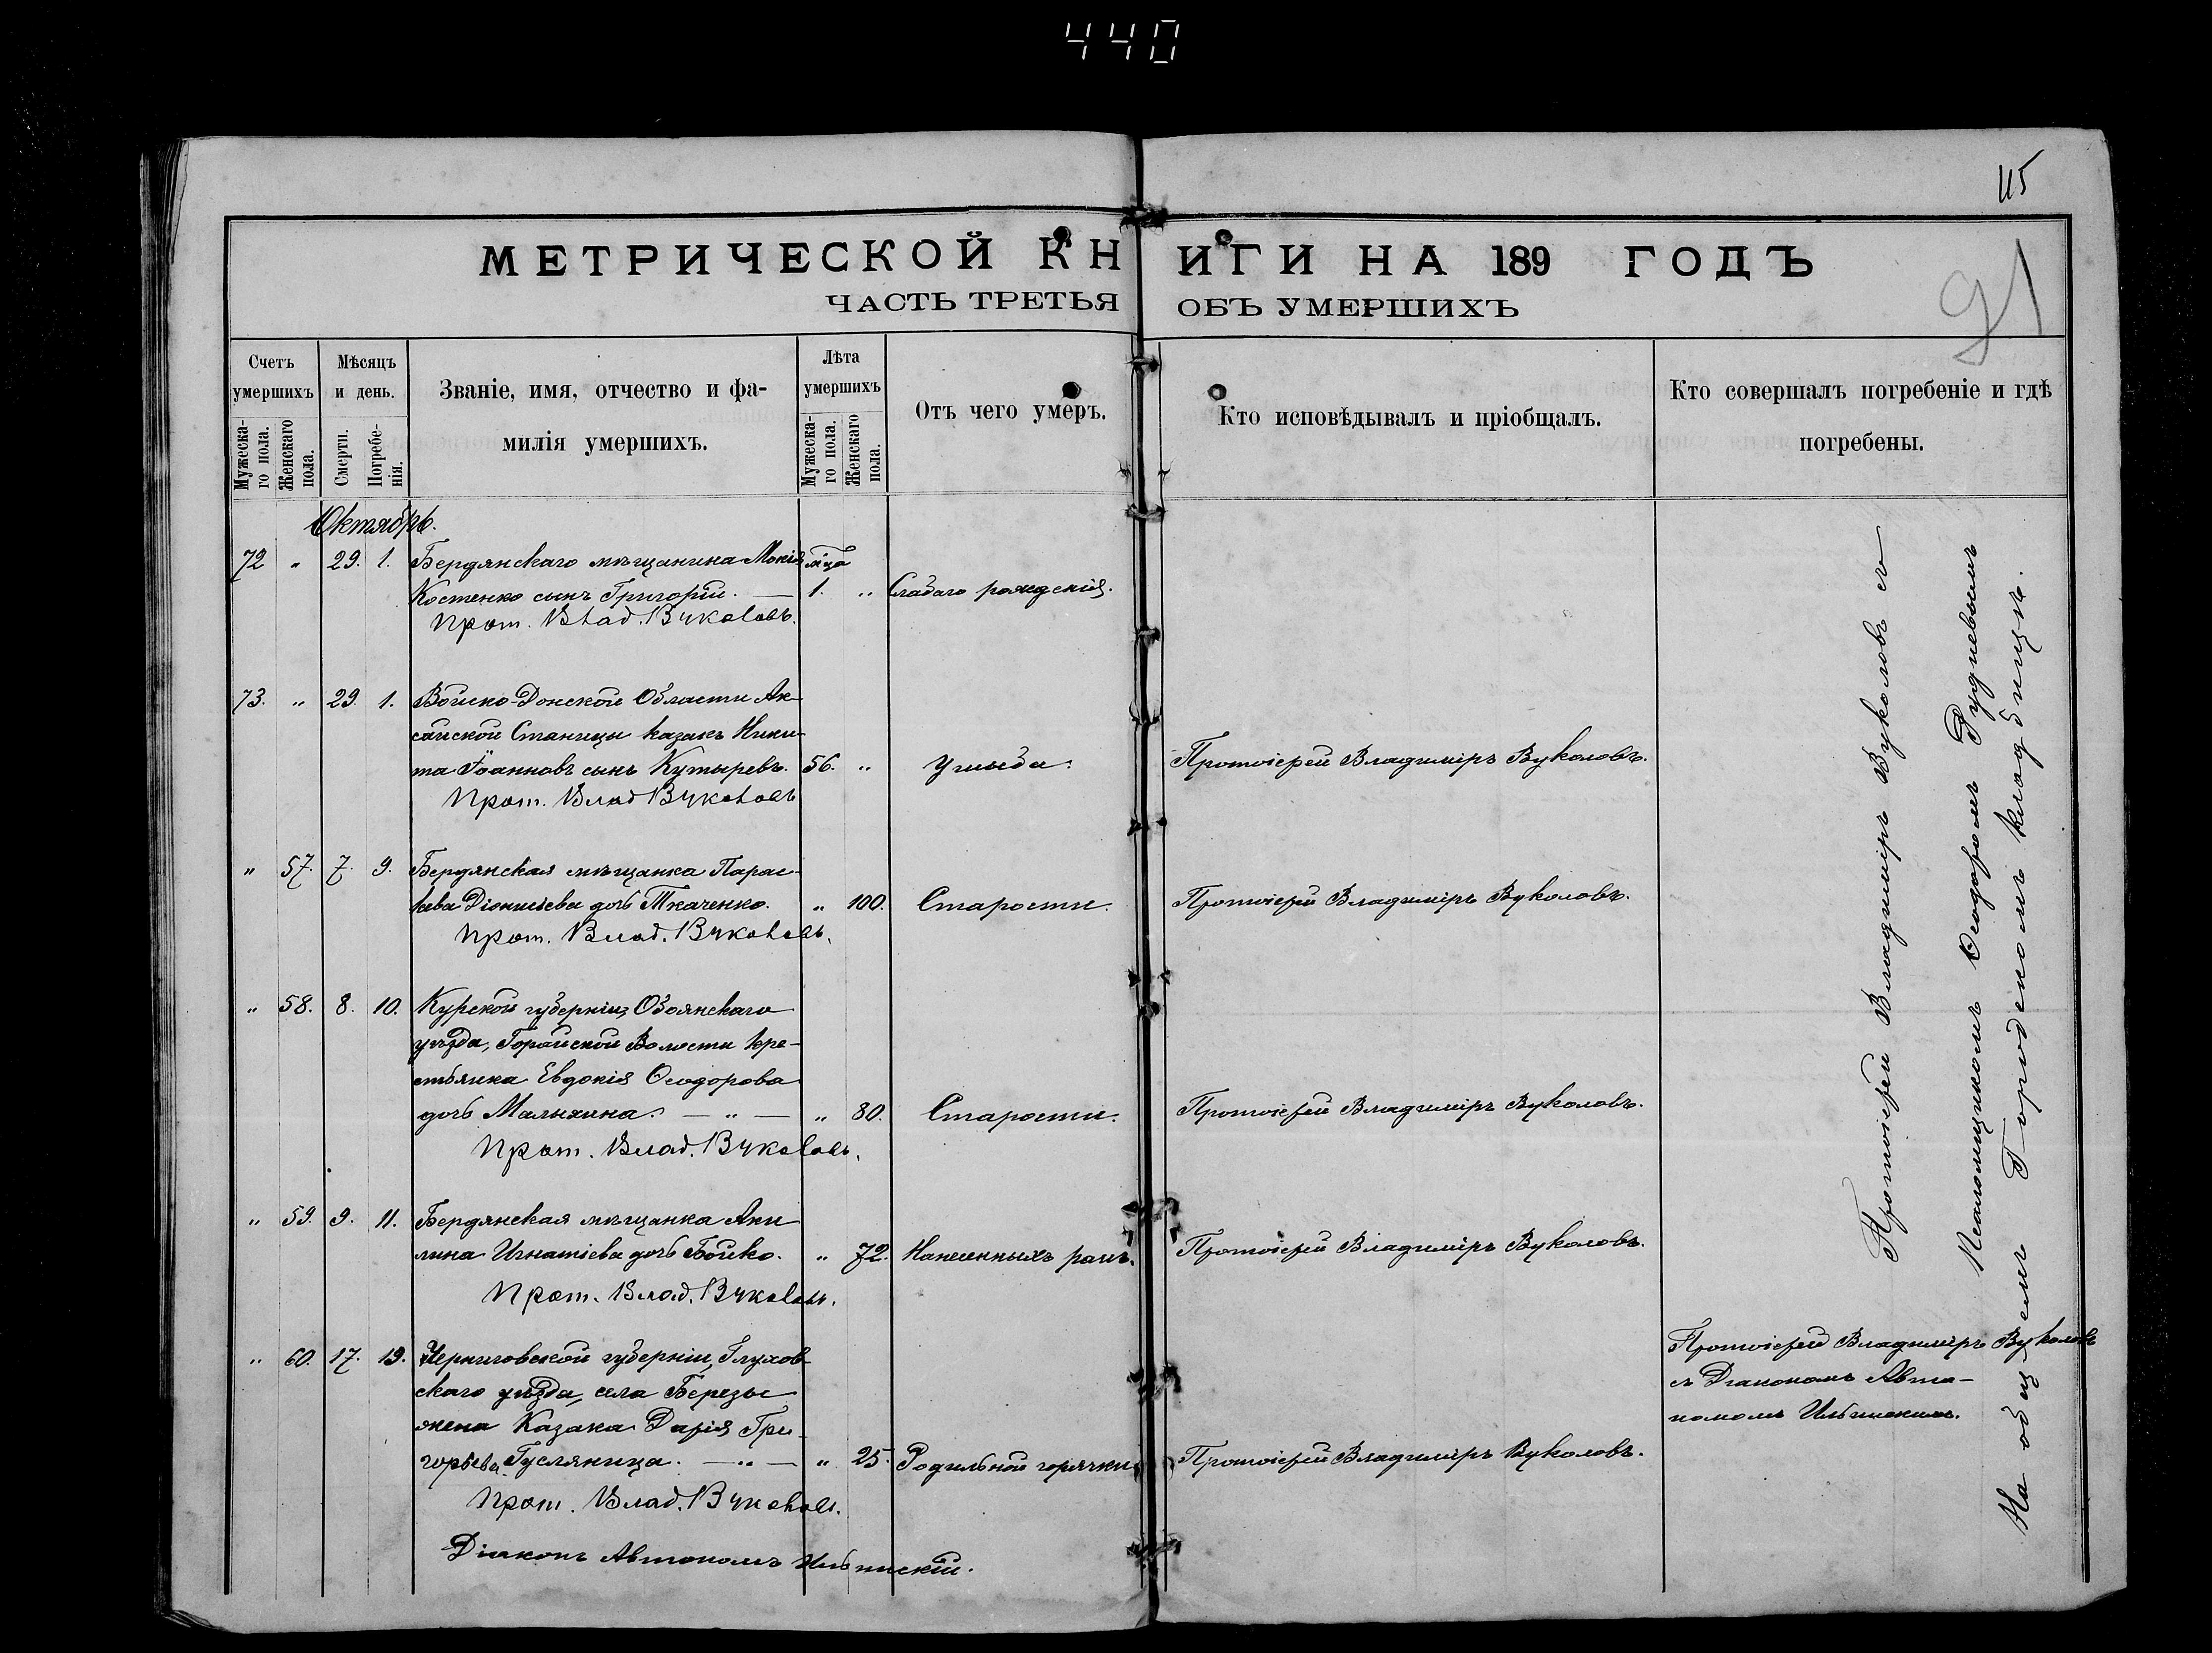 440
45
91
МЕТРИЧЕСКОЙ КНИГИ НА 189 ГОДЪ
ЧАСТЬ ТРЕТЬЯ ОБЪ УМЕРШИХЪ
Счетъ умершихъ
Мужеска-го пола.
Женскаго пола.
Мѣсяцъ и день.
Смерти.
Погребе-нія.
Званіе, имя, отчество и фа-
милія умершихъ.
Лѣта умершихъ
Мужеска-го пола.
Женскаго пола.
Отъ чего умеръ.
Кто исповѣдывалъ и пріобщалъ.
Кто совершалъ погребеніе и гдѣ
погребены.
Октябрь.
72 " 29. 1. Бердянскаго мѣщанина Мокія м-ца
Костенко сынъ Григорій. — 1. " Слабаго рожденія.
Прот. Влад. Вуколовъ.
73. " 29. 1. Войско-Донской Области Ак-
сайской Станицы казакъ Ники-
та Іоанновъ сынъ Кутыревъ. 56. " Протоіерей Владиміръ Вуколовъ.
Прот. Влад Вуколовъ
" 57. 7. 9. Бердянская мѣщанка Парас-
кева Діонисіева дочь Ткаченко. " 100. Старости. Протоіерей Владиміръ Вуколовъ.
Прот. Влад. Вуколовъ.
" 58. 8. 10. Курской губерніи, Обоянскаго
уѣзда, Волости кре-
стьянка Евдокія Ѳеодорова
дочь Малыхина. — " — " 80. Старости. Протоіерей Владиміръ Вуколовъ.
Прот. Влад. Вуколовъ.
" 59. 9. 11. Бердянская мѣщанка Аки
лина Игнатіева дочь Бойко. " 72. Нанесенныхъ ранъ. Протоіерей Владиміръ Вуколовъ.
Прот. Влад. Вуколовъ.
" 60. 17. 19. Черниговской губерніи, Глухов-
скаго уѣзда, села Березы
жена Казака Дарія Гри-
горьева Гусляница. — " — " 25. Родильной горячки Протоіерей Владиміръ Вуколовъ.
Прот. Влад. Вуколовъ.
Діаконъ Автономъ Ильинскій.
Протоіерей Владиміръ Вуколовъ съ
Псаломщикомъ Ѳеодоромъ Рудневымъ
На общемъ Городскомъ кладбищѣ.
Протоіерей Владиміръ Вуколовъ
съ Діакономъ Авто-
номомъ Ильинскимъ.